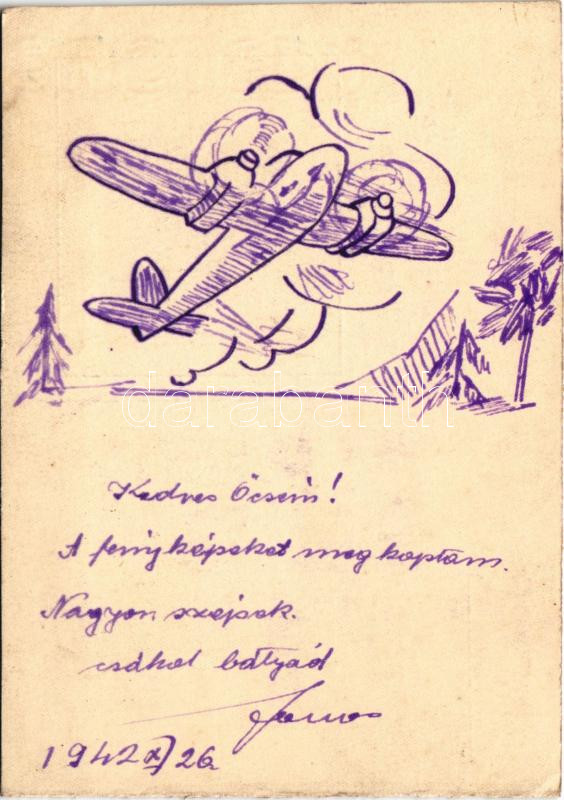 darabanth
Kedves Öcsém!
A fényképeket megkaptam.
Nagyon szépek.
csókol bátyád
János
1942 X/26